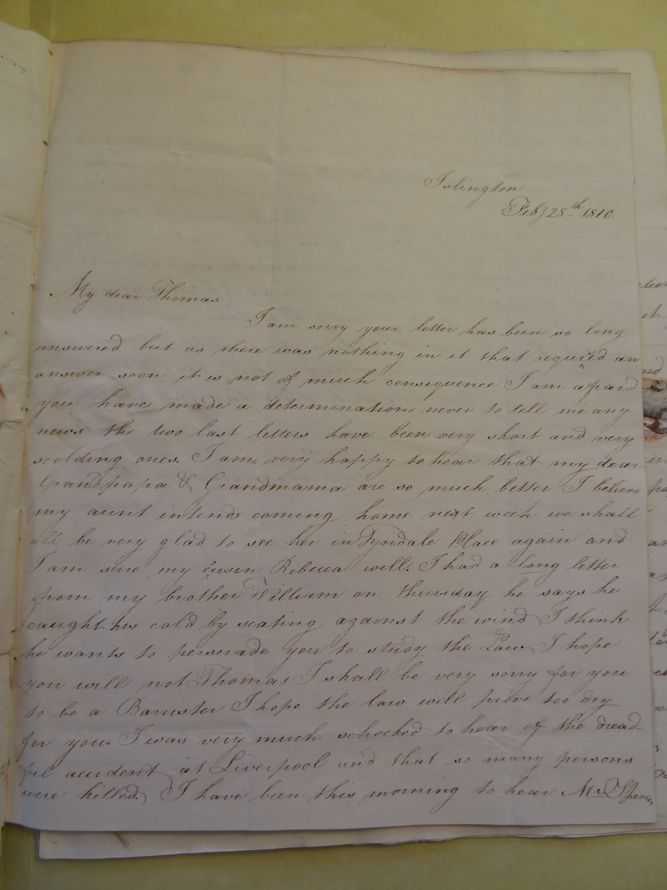 Islington
Feb 28th 1810.
My dear Thomas
I am sorry your letter has been so long
unswered but as there was nothing in it that required an
answer soon it is not of much consequence I am afraid
you have made a determination never to tell me any
news the two last letters have been very short and very
scolding ones. I am very happy to hear that my dear
Grandpapa & Grandmama are so much better I believe
my aunt intends coming home next week we shall
all be very glad to see her in Tyndale Place again and
I am sure my cusin Rebecca will. I had a long letter
from my brother William on thursday he says he
caught his cold by scating against the wind I think
he wants to persuade you to study the Law I hope
you will not Thomas I shall be very sorry for you
to be a Barrister I hope the law will prove too dry
for you. I was very much schocked to hear of the dread
ful accident at Liverpool and that so many persons
were killed, I have been this morning to hear Mr Spence